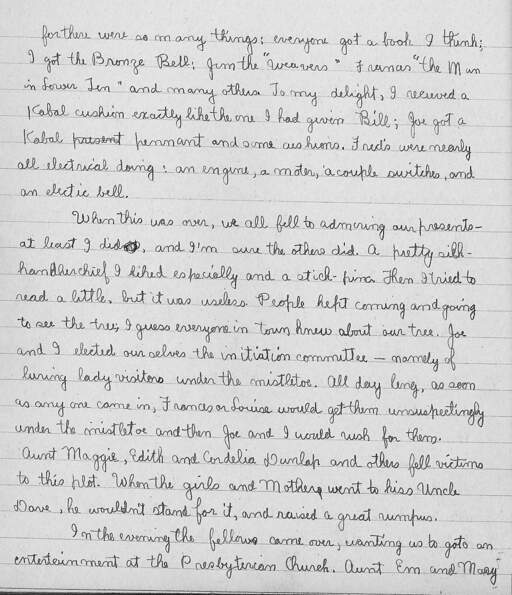 for there were so many things; everyone got a book I think;
I got the Bronze Bell; Jim the "Weavers" Frances "the Man
in Lower Ten" and many others To my delight, I recieved a
Kabal cushion exactly like the one I had given Bill; Joe got a
Kabal present pennant and some cushions. Fred's were nearly
all electrical doing: an engine, a moter, a couple switches, and
an electic bell.
When this was over, we all fell to admiring our presents-
at least I did, and I'm sure the others did. A pretty silk-
handkerchief I liked especially and a stick-pin. Then I tried to
read a little, but it was useless People kept coming and going
to see the tree, I guess everyone in town knew about our tree. Joe
and I elected ourselves the initiation committee — namely of
luring lady visitors under the mistletoe. All day long, as soon
as any one came in, Frances or Louise would get them unsuspectingly
under the mistletoe and then Joe and I would rush for them.
Aunt Maggie, Edith and Cordelia Dunlap and others fell victims
to this plot. When the girls and Mother went to kiss Uncle
Dave, he wouldn't stand for it, and raised a great rumpus.
In the evening the fellows came over, wanting us to go to an
entertainment at the Presbyterian Church. Aunt Em and Mary